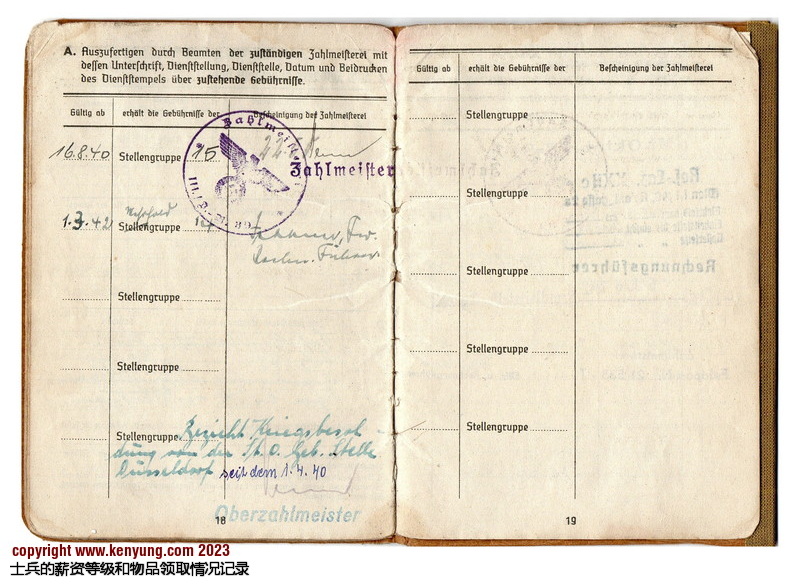 A. Auszufertigen durch Beamten der zuständigen Zahlmeisterei mit
dessen Unterschrift, Dienststellung, Dienststelle, Datum und Beidrucken
des Dienststempels über zustehende Gebührnisse.
Gültig ab erhält die Gebührnisse der Bescheinigung der Zahlmeisterei
16.8.40 Stellengruppe 15
Zahlmeister
1.3.42 Stellengruppe 14
Stellengruppe
Stellengruppe
Stellengruppe Bezieht Kriegsbesol-
dung von der St.O. Geb. Stelle
Düsseldorf seit dem 1.4.40
Oberzahlmeister
18
Gültig ab erhält die Gebührnisse der Bescheinigung der Zahlmeisterei
Stellengruppe
Stellengruppe
Stellengruppe
Stellengruppe
Stellengruppe
Rechnungsführer
19
copyright www.kenyung.com 2023
士兵的薪资等级和物品领取情况记录